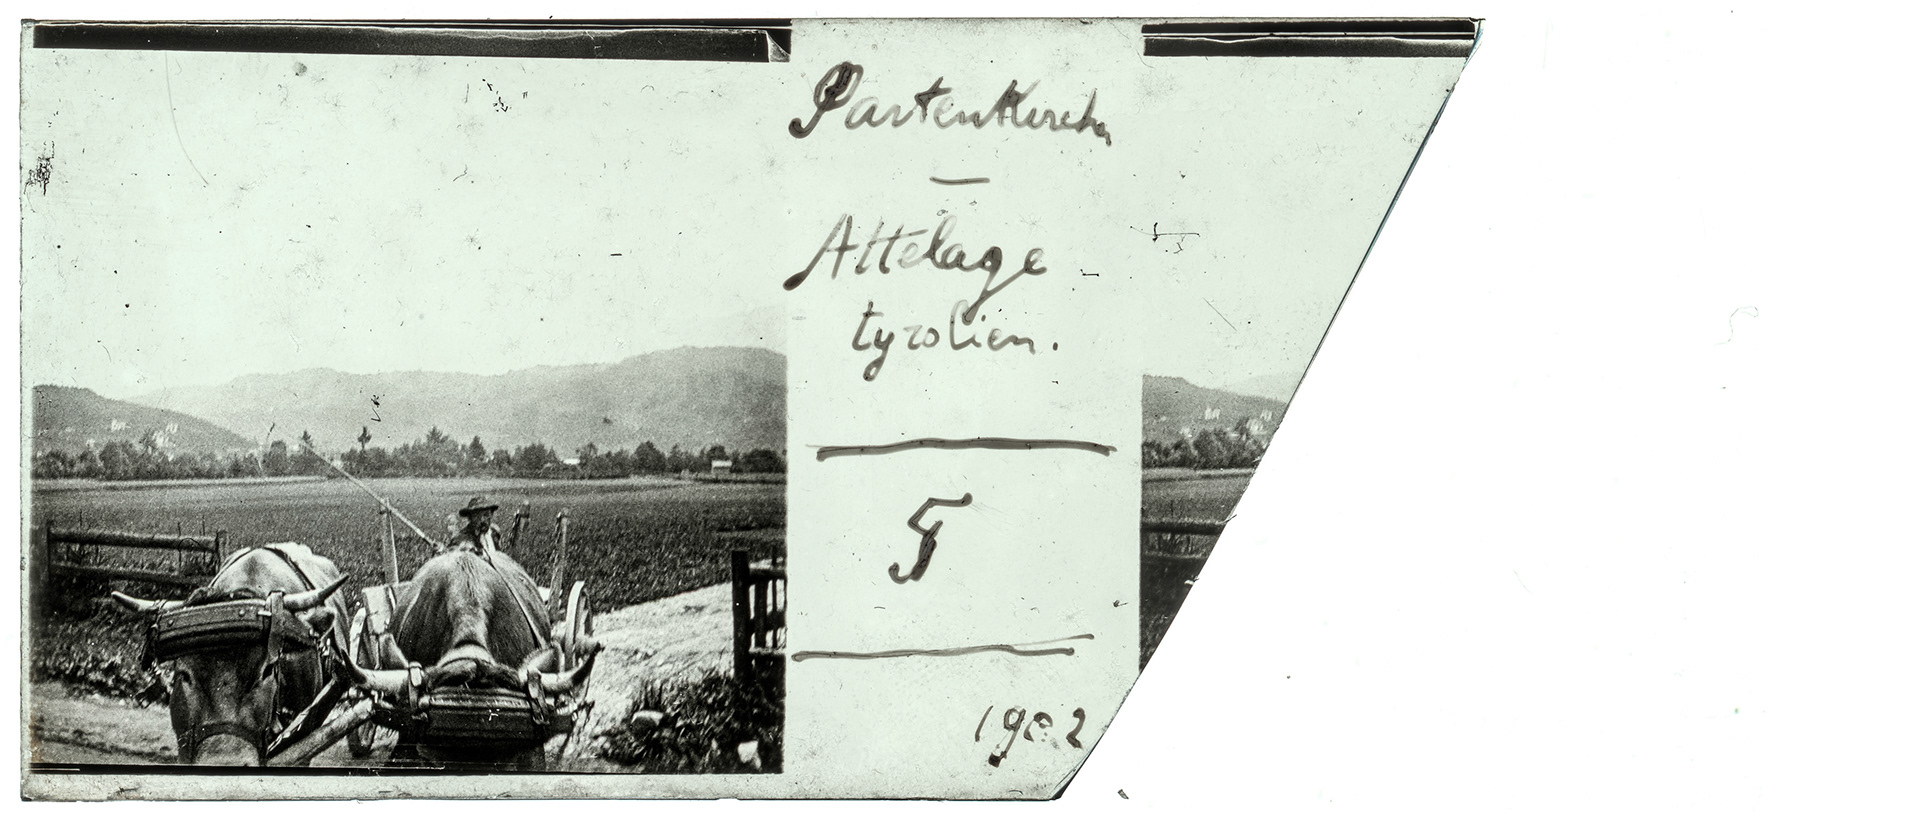 Partenkirchen
—
Attelage
tyrolien.
5
1902